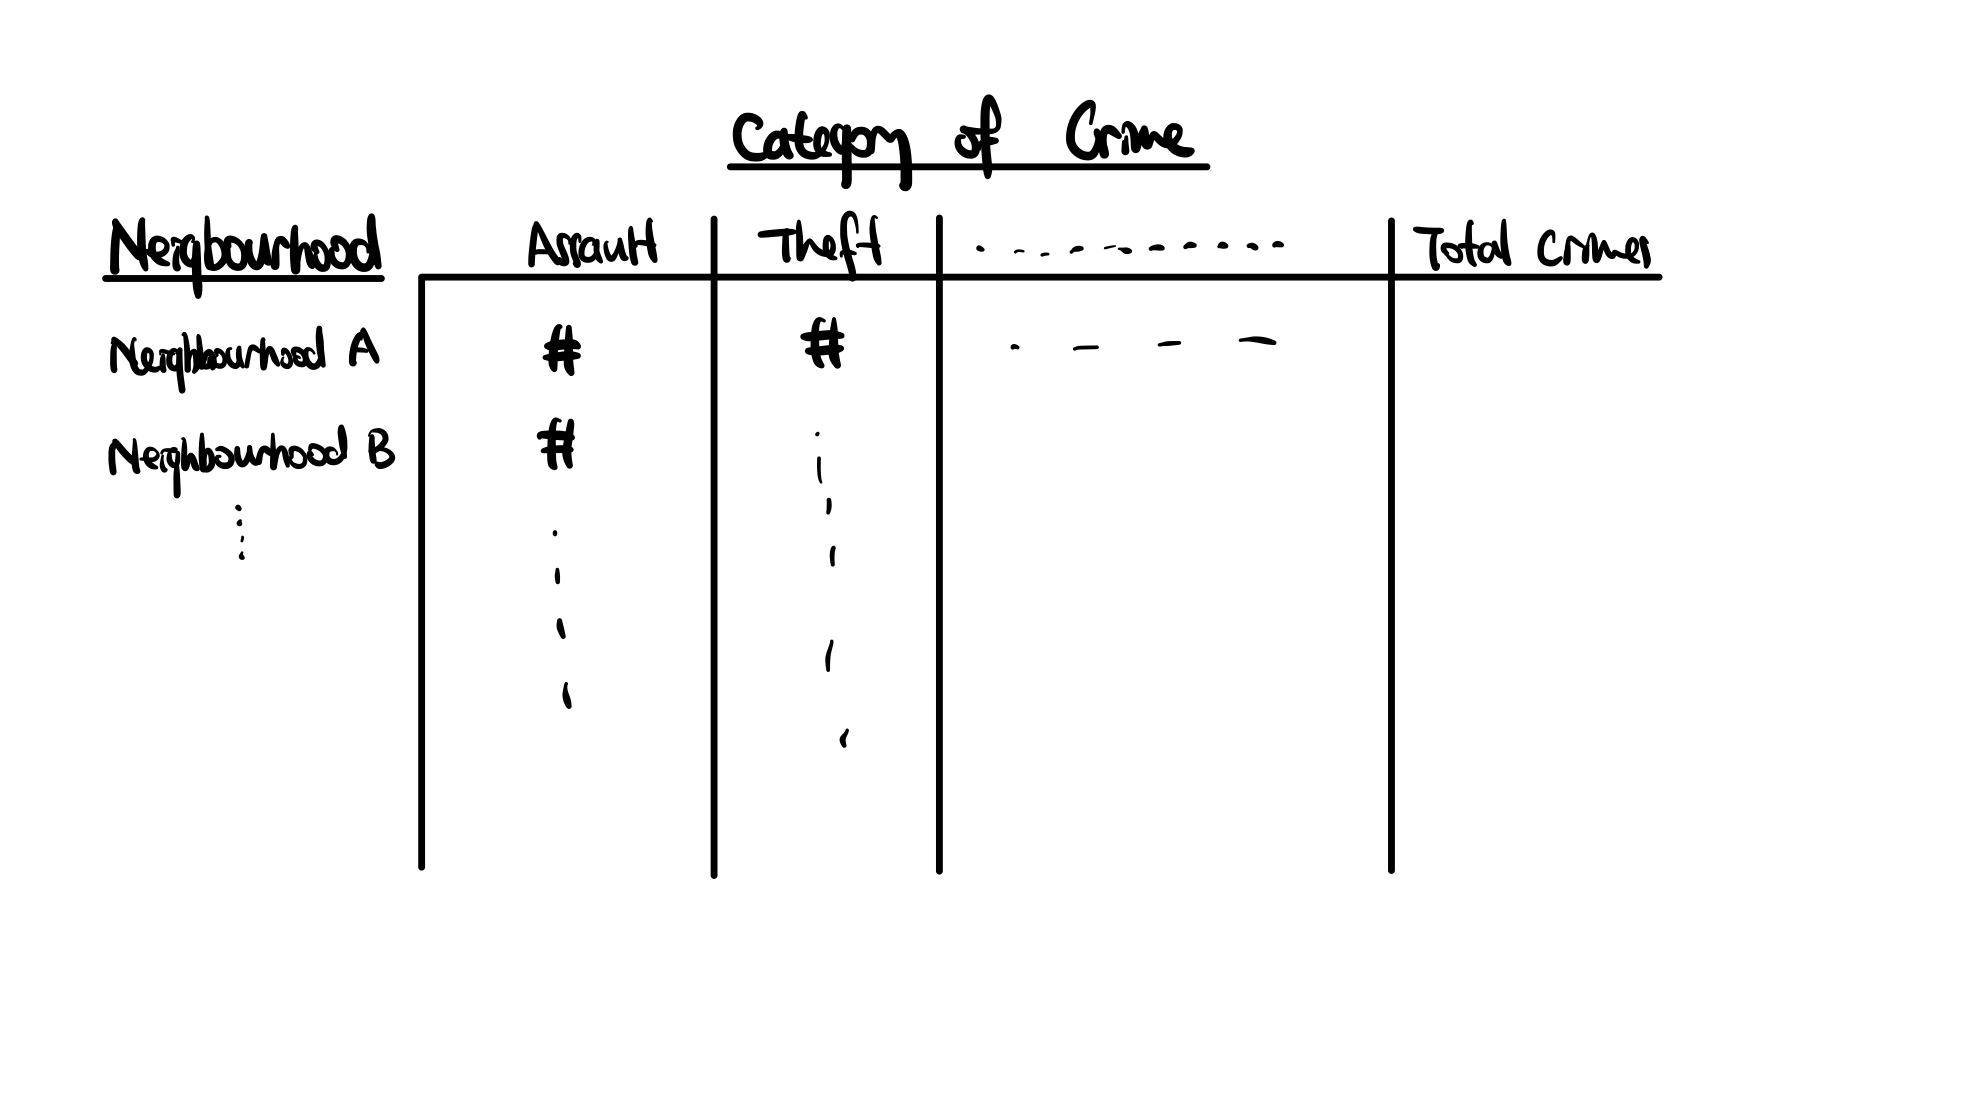 Category of Crime
Neighbourhood Assault Theft .......... Total Crimes
Neighbourhood A # # . - - -
Neighbourhood B #